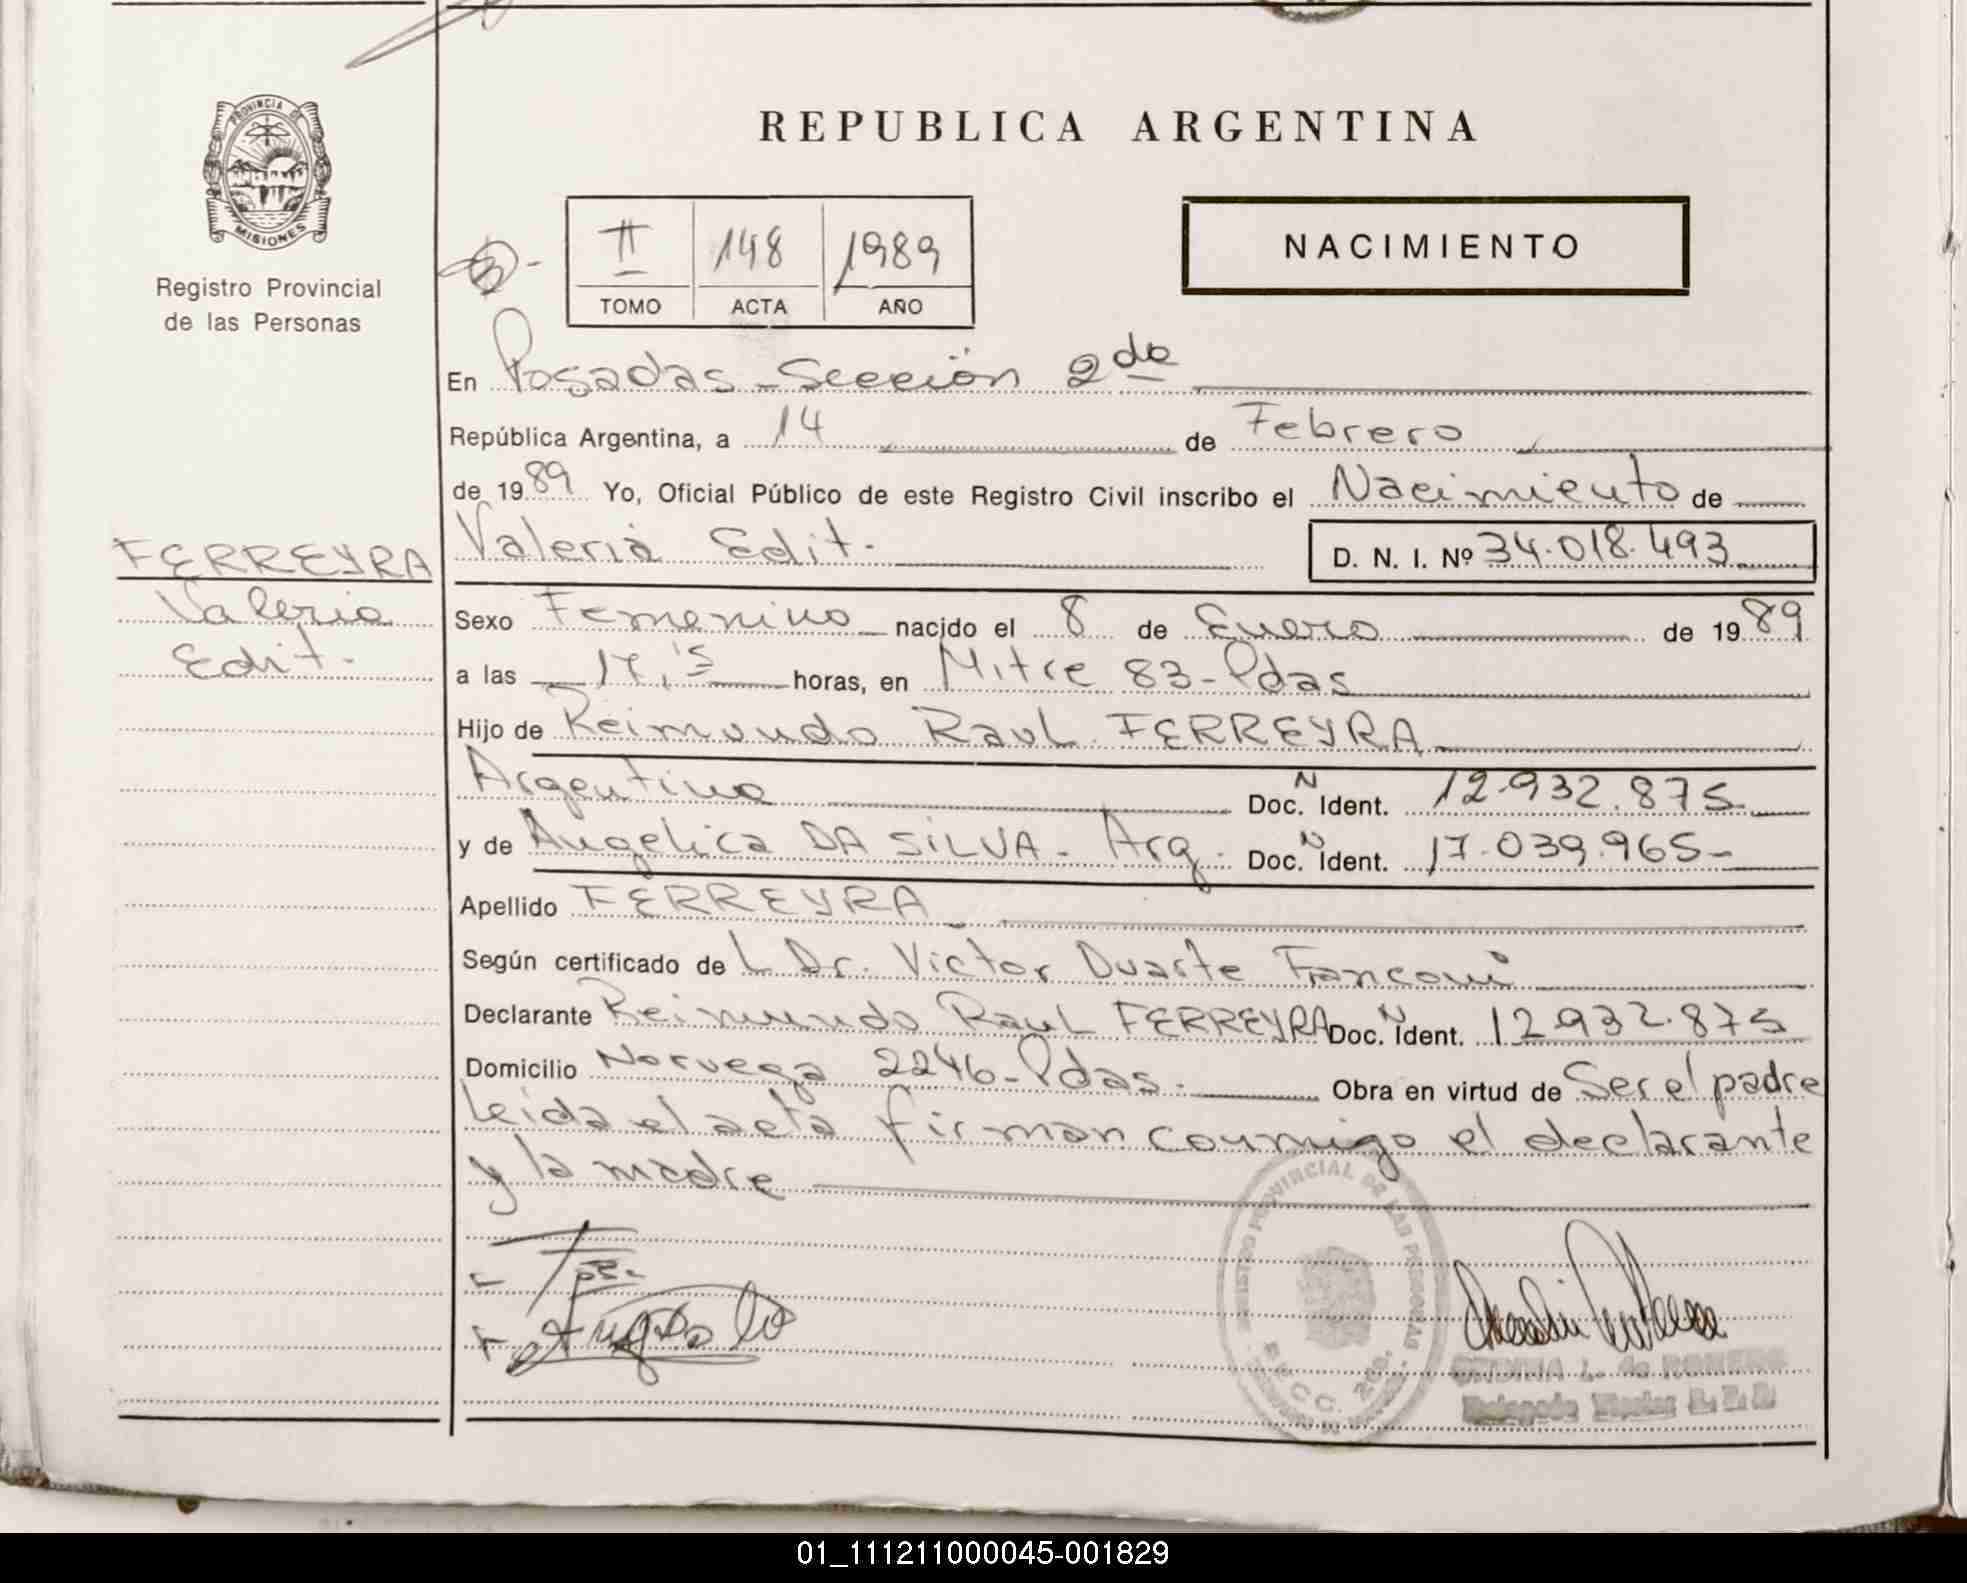 REPUBLICA ARGENTINA
PROVINCIA DE
MISIONES
Registro Provincial
de las Personas
II 148 1989
TOMO ACTA AÑO
NACIMIENTO
En Posadas - Sección 2da
República Argentina, a 14 de Febrero
de 1989 Yo, Oficial Público de este Registro Civil inscribo el Nacimiento de
Valeria Edit. D. N. I. Nº 34.018.493
FERREYRA
Valeria
Edit.-
Sexo Femenino nacido el 8 de Enero de 1989
a las 17,15 horas, en Mitre 83-Pdas
Hijo de Reimundo Raul FERREYRA
Argentino Doc. N Ident. 12.932.875
y de Angelica DA SILVA - Arg. Doc. N Ident. 17.039.965-
Apellido FERREYRA
Según certificado de L Dr. Victor Duarte
Declarante Reimundo Raul FERREYRA Doc. N Ident. 12.932.875
Domicilio Noruega 2246-Pdas. Obra en virtud de Ser el padre
Leida el acta firman conmigo el declarante
y la madre
PROVINCIAL DE LAS PERSONAS
01_111211000045-001829